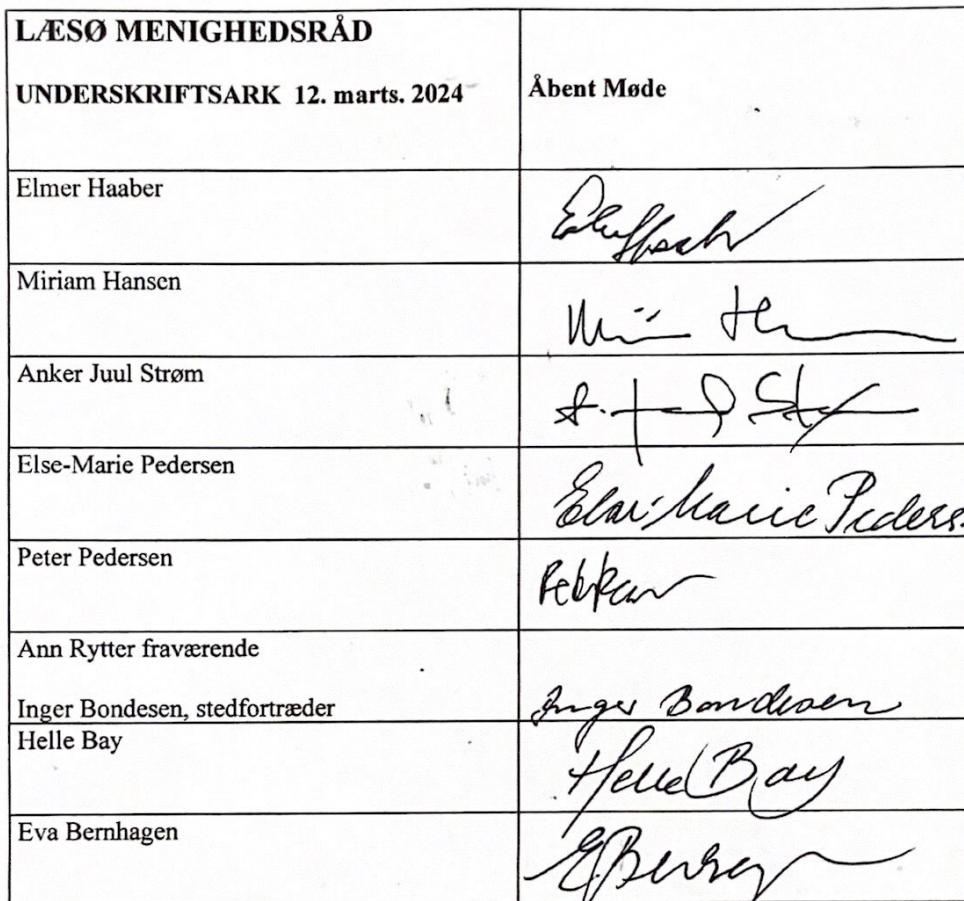 LÆSØ MENIGHEDSRÅD
UNDERSKRIFTSARK 12. marts. 2024 Åbent Møde
Elmer Haaber
Miriam Hansen
Anker Juul Strøm
Else-Marie Pedersen
Else-Marie Peders
Peter Pedersen
Ann Rytter fraværende
Inger Bondesen, stedfortræder Inger Bondesen
Helle Bay Helle Bay
Eva Bernhagen